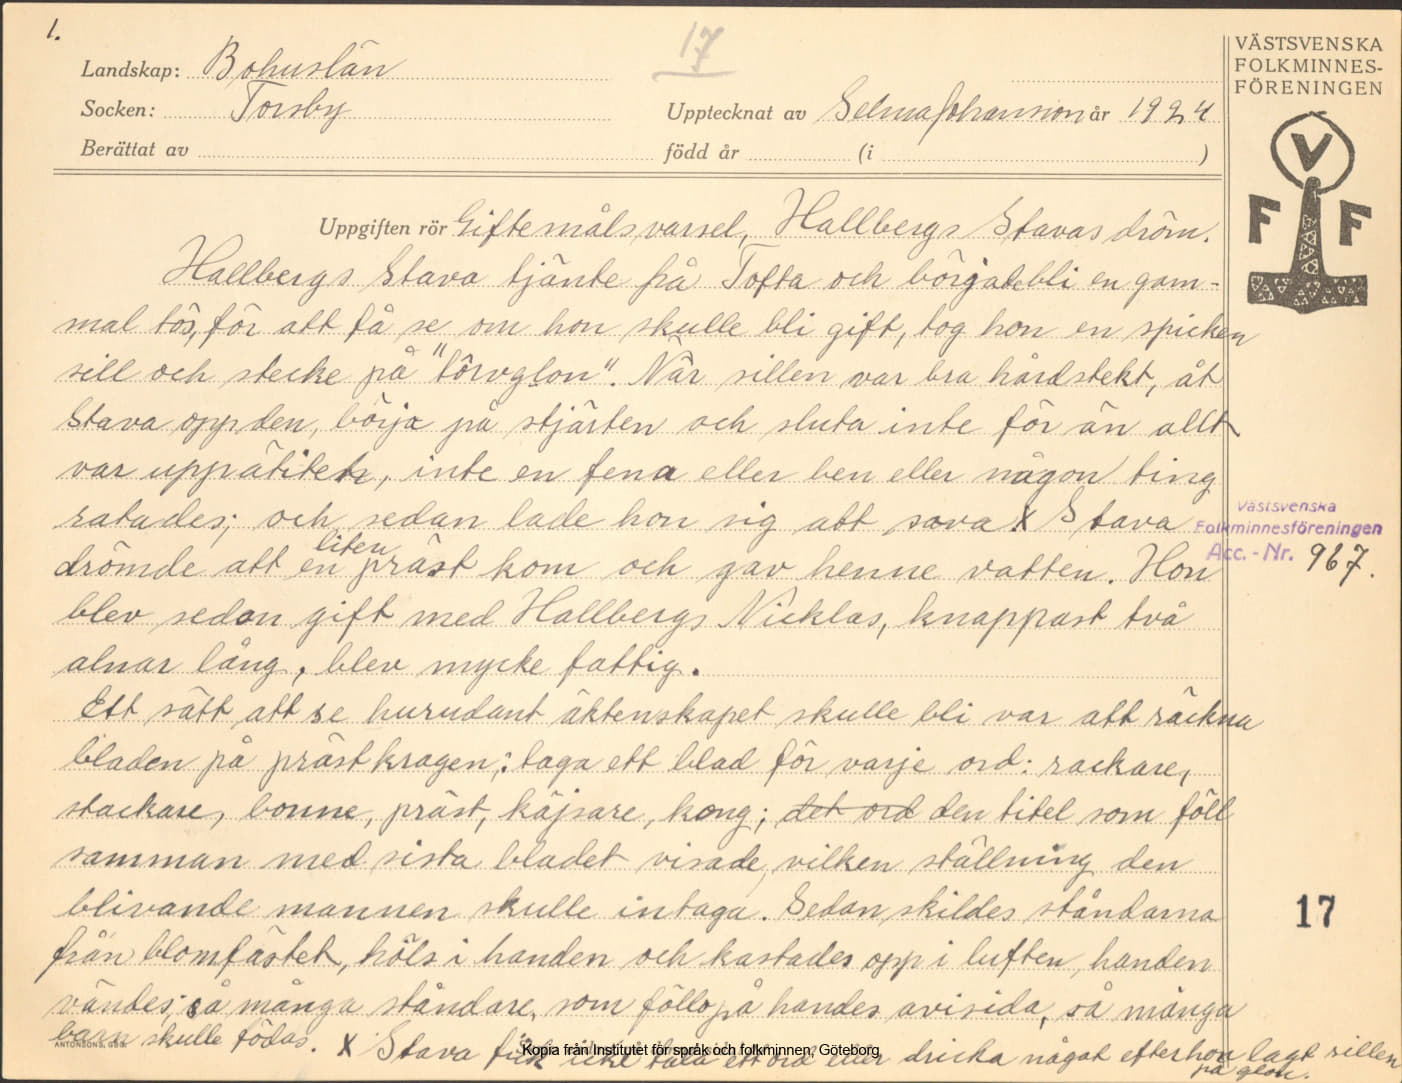 1.
17
Landskap: Bohuslän
Socken: Torsby
Upptecknat av Selma Johansson år 1924
Berättat av
född år (i )
VÄSTSVENSKA
FOLKMINNES-
FÖRENINGEN
V
F F
Uppgiften rör Giftemålsvarsel, Hallbergs Stavas dröm.
Hallbergs Stava tjänte på Tofta och börjadebli en gam-
mal tös, för att få se om hon skulle bli gift, tog hon en spicken
sill och stecke på "törvglon". När sillen var bra hårdstekt, åt
Stava opp den, börja på stjärten och sluta inte för än allt
var uppätitets, inte en fena eller ben eller någon ting
ratades; och sedan lade hon sig att sova X Stava
drömde att en liten präst kom och gav henne vatten. Hon
blev sedan gift med Hallbergs Nicklas, knappast två
alnar lång, blev mycke fattig.
Ett sätt att se hurudant äktenskapet skulle bli var att räckna
bladen på prästkragen; taga ett blad för varje ord: rackare,
stackare, bonne, präst, käjsare, kong; det ord den titel som föll
samman med sista bladet visade, vilken ställning den
blivande mannen skulle intaga. Sedan skildes ståndarna
från blomfästet, höls i handen och kastades opp i luften, handen
vändes; så många ståndare, som föllo på handes avisida, så många
barn skulle födas. X Stava fick icke tala ett ord eller dricka något efter hon lagt sillen
på glon.
Västsvenska
Folkminnesföreningen
Acc. - Nr. 967.
17
Kopia från Institutet för språk och folkminnen, Göteborg